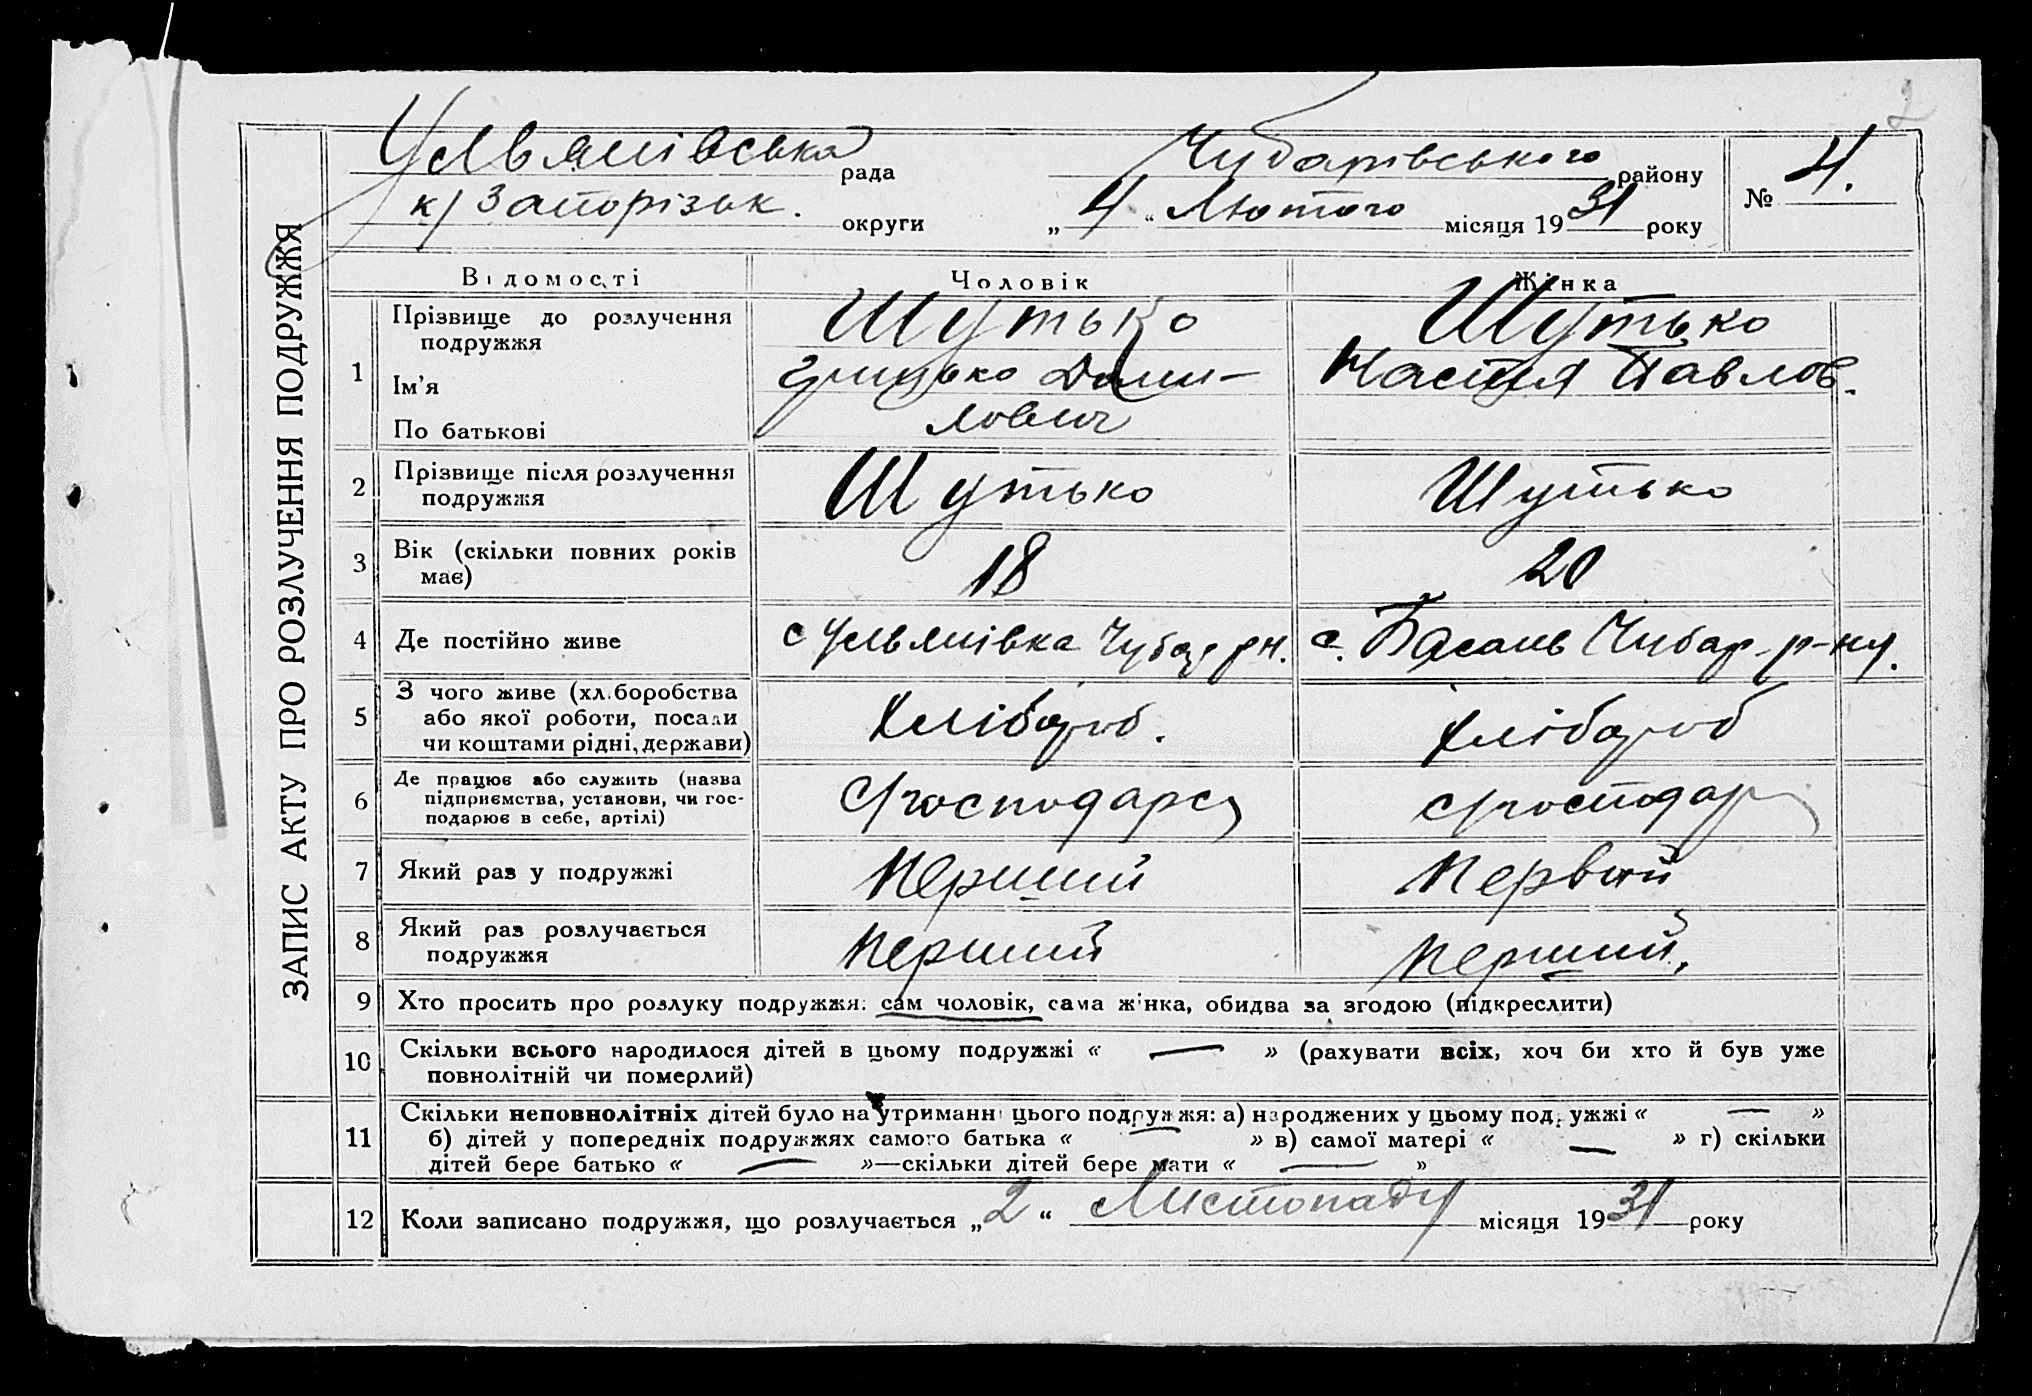 2
ЗАПИС АКТУ ПРО РОЗЛУЧЕННЯ ПОДРУЖЖЯ
Ульянівська рада Чубарівського району № 4.
к) Запорізьк. округи „4“ Лютого місяця 1931 року
Відомості Чоловік Жінка
1 Прізвище до розлучення подружжя Шутько Шутько
Ім'я Грицько Дани- Настя Павлов.
По батькові лович
2 Прізвище після розлучення Шутько Шутько
подружжя
3 Вік (скільки повних років 18 20
має)
4 Де постійно живе с Ульянівка Чубар рн. с. Басань Чубар-р-ну.
5 З чого живе (хл.боробства
або якої роботи, посади Хлібороб. Хлібороб
чи коштами рідні, держави)
6 Де працює або служить (назва
підприємства, установи, чи гос-
подарює в себе, артілі) с/господар с/господар
7 Який раз у подружжі Перший Первий
8 Який раз розлучається Перший Перший.
подружжя
9 Хто просить про розлуку подружжя: сам чоловік, сама жінка, обидва за згодою (підкреслити)
10 Скільки всього народилося дітей в цьому подружжі « — » (рахувати всіх, хоч би хто й був уже
повнолітній чи померлий)
11 Скільки неповнолітніх дітей було на утриманні цього подружжя: а) народжених у цьому подружжі « — »
б) дітей у попередніх подружжях самого батька « — » в) самої матері « — » г) скільки
дітей бере батько « — »—скільки дітей бере мати « — »
12 Коли записано подружжя, що розлучається „2“ Листопаду місяця 1931 року